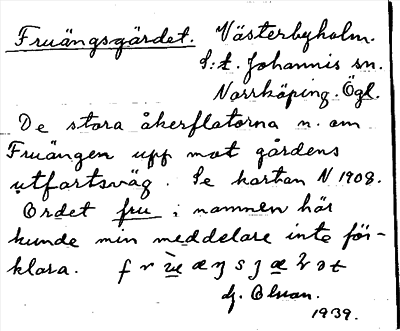 Fruängsgärdet. Västerbyholm.
S:t. Johannis sn.
Norrköping. Ögl.
De stora åkerflatorna n. om
Fruängen upp mot gårdens
utfartsväg. Se kartan N 1908.
Ordet fru i namnen här
kunde min meddelare inte för-
klara.
1939.